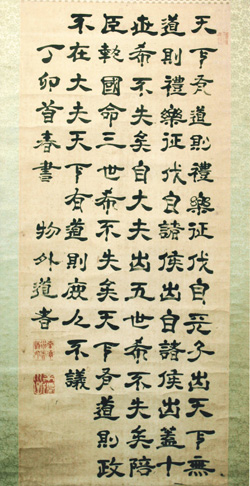 天下有道則禮樂征伐自天子出天下無
道則禮樂征伐自諸侯出自諸侯出蓋十
世希不失矣自大夫出五世希不失矣陪
臣執國命三世希不失矣天下有道則政
不在大夫天下有道則庶人不議
丁卯首春書 物外道